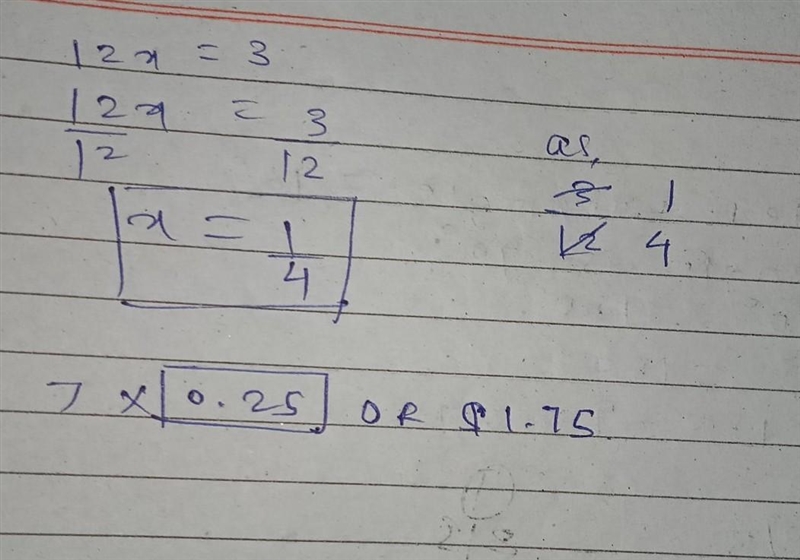 12x = 3
12x/12 = 3/12
x = 1/4
as,
3/12 1/4
7 x 0.25 OR $1.75